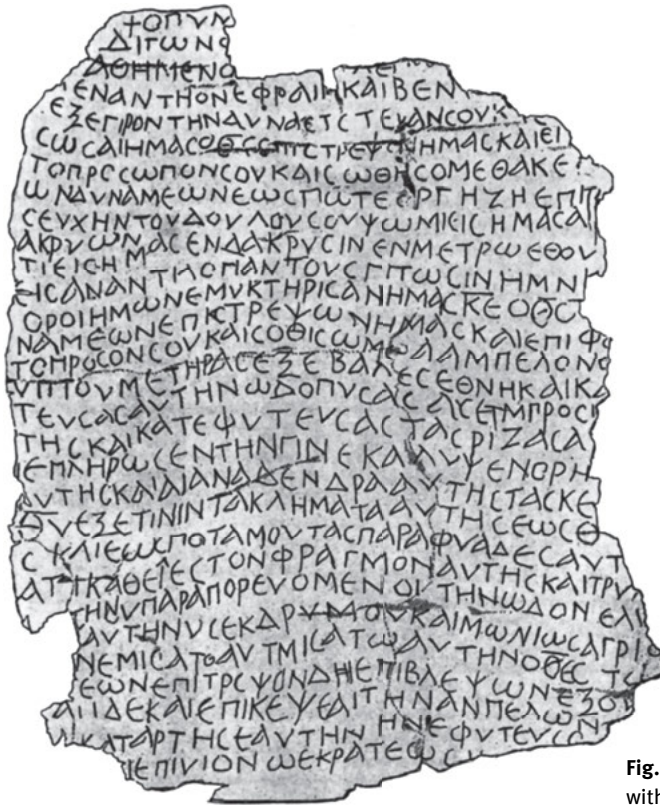 +ΟΠΥΛ
ΔΙΓΩΝΟ
ΑΘΗΜΕΝΟ
ΕΝΑΝΤΗΟΝΕΦΡΑΙΗΚΑΙΒΕΝ
ΕΞΕΓΙΡΟΝΤΗΝΔΥΝΑΕΤCΤΕΚΑΝCΟΥΚ
CΩCΑΙΗΜΑCΟΘCCΠΙCΤΡΕΨΟΝΗΜΑCΚΑΙΕΙ
ΤΟΠΡCCΩΠΟΝCΟΥΚΑΙCΩΘΗCΟΜΕΘΑΚΕ
ΩΝΔΥΝΑΜΕΩΝΕΩCΠΩΤΕΟΡΓΗΖΗΕΠΙ
CΕΥΧΗΝΤΟΥΔΟΥΛΟΥCΟΥΨΩΜΙΕΙCΗΜΑCΑ
ΑΚΡΥΩΝ
ΤΙΕΙCΗΜΑCΕΝΔΑΚΡΥCΙΝΕΝΜΕΤΡΩΕΘΟΥ
ΕΙCΑΝΑΝΤΙΛΟΠΑΝΤΟΥCΓΙΤΩCΙΝΗΜΝ
ΟΡΟΙΗΜΩΝΕΜΥΚΤΗΡΙCΑΝΗΜΑCΚΕΟΘC
ΝΑΜΕΩΝΕΠΚΤΡΕΨΩΝΗΜΑCΚΑΙΕΠΙΦ
ΤΟΠΡΟCΟΝCΟΥΚΑΙCΟΘΙCΩΜΕΘΑΑΜΠΕΛΟΝΟ
ΥΠΤΟΥΜΕΤΗΡΑCΕΞΕΒΑΛΕCΕΘΝΗΚΑΙΚΑ
ΤΕΥCΑCΑΥΤΗΝΩΔΟΠΥCΑCΑCΕΤΜΠΡΟCΙ
ΤΗCΚΑΙΚΑΤΕΦΥΤΕΥCΑCΤΑCΡΙΖΑCΑ
ΕΠΛΗΡΩCΕΝΤΗΝΓΙΝΕΚΑΛΥΨΕΝΟΡΗ
ΑΥΤΗCΚΑΙΑΙΑΝΑΔΕΝΔΡΑΑΥΤΗCΤΑCΚΕ
ΘΥΕΞΕΤΙΝΙΝΤΑΚΛΗΜΑΤΑΑΥΤΗCΕΩCΘ
CΚΑΙΕΩCΠΟΤΑΜΟΥΤΑCΠΑΡΑΦΥΑΔΕCΑΥΤ
ΑΤΙΚΑΘΕΙΕCΤΟΝΦΡΑΓΜΟΝΑΥΤΗCΚΑΙΤΡΥ
ΤΗΝΥΠΑΡΑΠΟΡΕΥΟΜΕΝΟΙΤΗΝΩΔΟΝΕΛΥ
ΑΥΤΗΝΥCΕΚΔΡΥΜΟΥΚΑΙΜΩΝΙΩCΑΓΡΙΟ
ΝΕΜΙCΑΤΟΑΥΤΜΙCΑΤΩΑΥΤΗΝΟΘΕCΤΩ
ΕΩΝΕΠΙΤΡCΨΟΝΔΗΕΠΙΒΛΕΨΩΝΕΞΟΥ
ΑΙΙΔΕΚΑΙΕΠΙΚΕΨΕΑΙΤΗΝΑΝΠΕΛΩΝ
ΚΑΤΑΡΤΗCΕΑΥΤΗΝΗΝΕΦΥΤΕΥCΩΝ
ΙΕΠΙΥΙΟΝΩΕΚΡΑΤΕΩ
Fig.
with